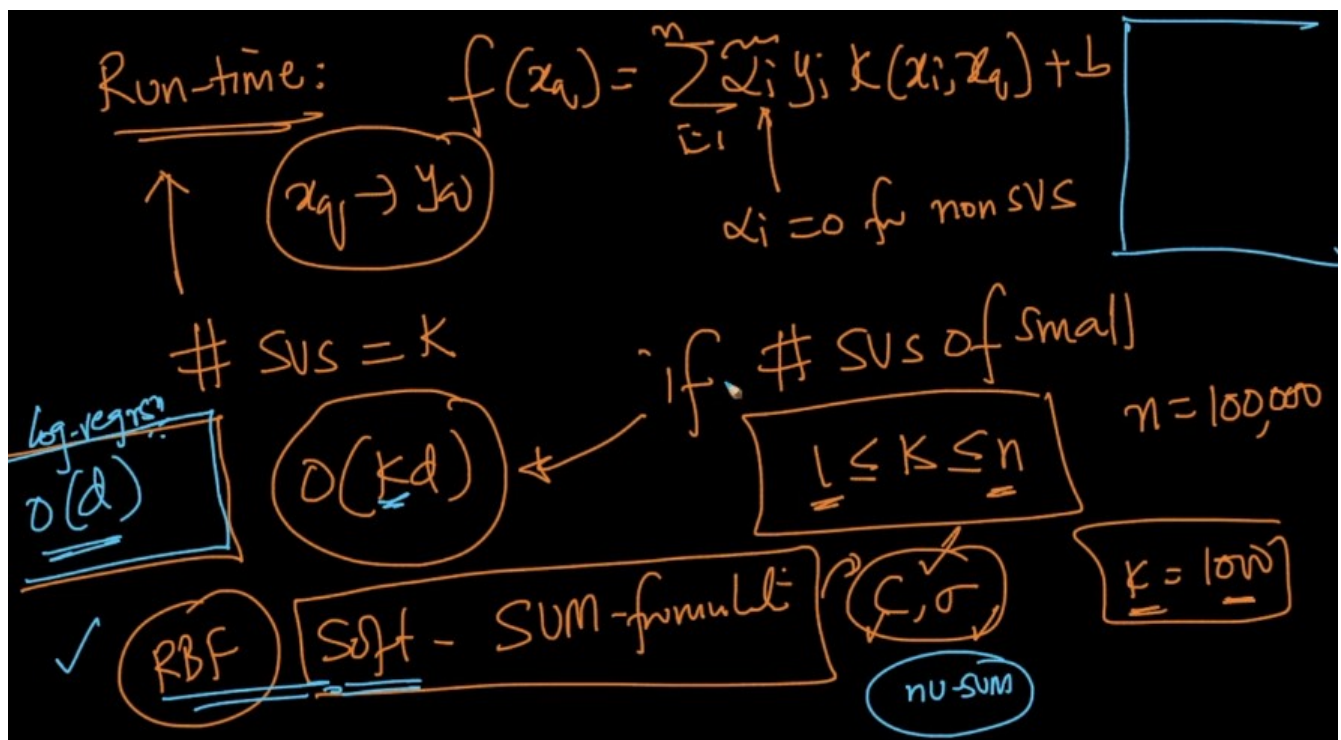 Run-time: f(xq) = Σ αi yi K(xi, xq) + b
n
i=1
xq → yq
αi = 0 for non SVs
# SVs = K
if # SVs of small
n = 100,000
log-regrsn
O(d)
O(Kd)
1 ≤ K ≤ n
K = 1000
RBF
Soft - SVM - formulati
C, σ
nu-SVM